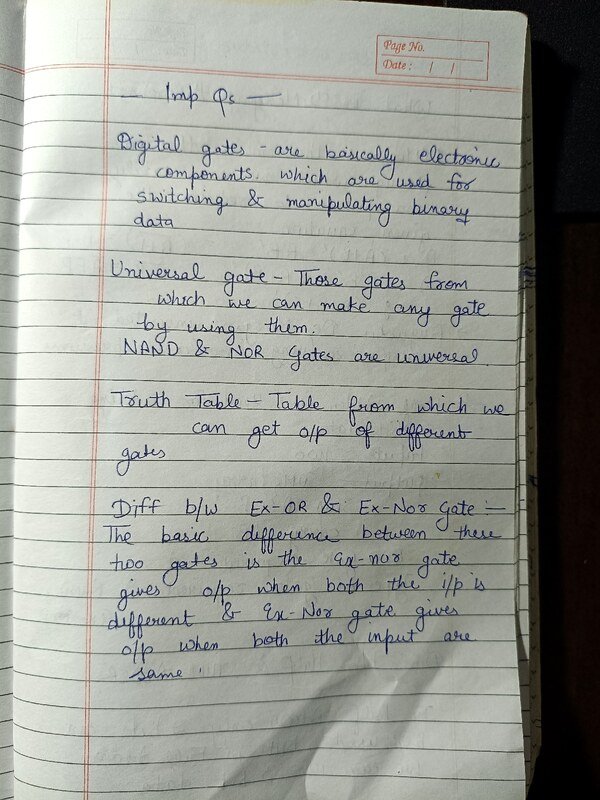 Page No.
Date: / /
— Imp Qs —
Digital gates - are basically electronic
components. which are used for
switching & manipulating binary
data
Universal gate - Those gates from
which we can make any gate
by using them.
NAND & NOR Gates are universal
Truth Table - Table from which we
can get o/p of different
gates
Diff b/w Ex-OR & Ex-Nor Gate :-
The basic difference between these
two gates is the Ex-nor gate
gives o/p when both the i/p is
different & Ex-Nor gate gives
o/p when both the input are
same.